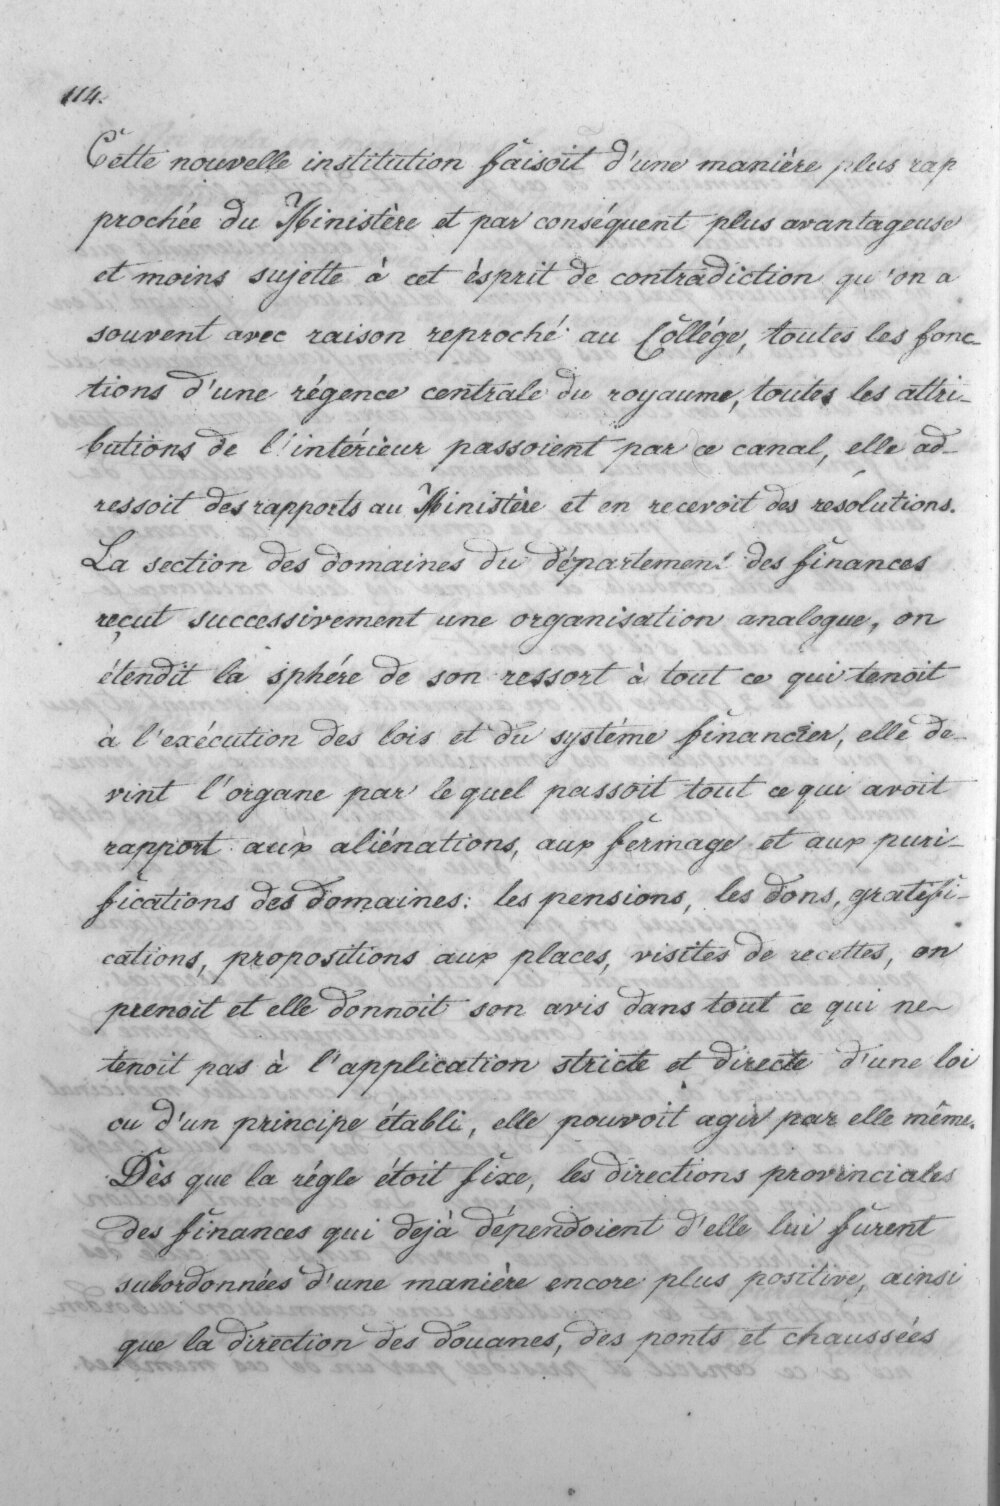 114.
Cette nouvelle institution faisoit d'une manière plus rap
prochée du Ministère et par conséquent plus avantageuse
et moins sujette à cet ésprit de contradiction qu'on a
souvent avec raison reproché au Collége, toutes les fonc-
tions d'une régence centrale du royaume, toutes les attri-
butions de l'intérieur passoient par ce canal, elle ad-
ressoit des rapports au Ministère et en recevoit des résolutions.
La section des domaines du département des finances
reçut successivement une organisation analogue, on
étendit la sphére de son ressort à tout ce qui tenoit
à l'exécution des lois et du systéme financier, elle de-
vint l'organe par le quel passoit tout ce qui avoit
rapport aux aliénations, aux fermage et aux puri-
fications des domaines: les pensions, les dons, gratifi-
cations, propositions aux places, visites de recettes, on
prenoit et elle donnoit son avis dans tout ce qui ne
tenoit pas à l'application stricte et directe d'une loi
ou d'un principe établi, elle pouvoit agir par elle même.
Dès que la régle étoit fixe, les directions provinciales
des finances qui dejà dépendoient d'elle lui furent
subordonnées d'une manière encore plus positive, ainsi
que la direction des douanes, des ponts et chaussées